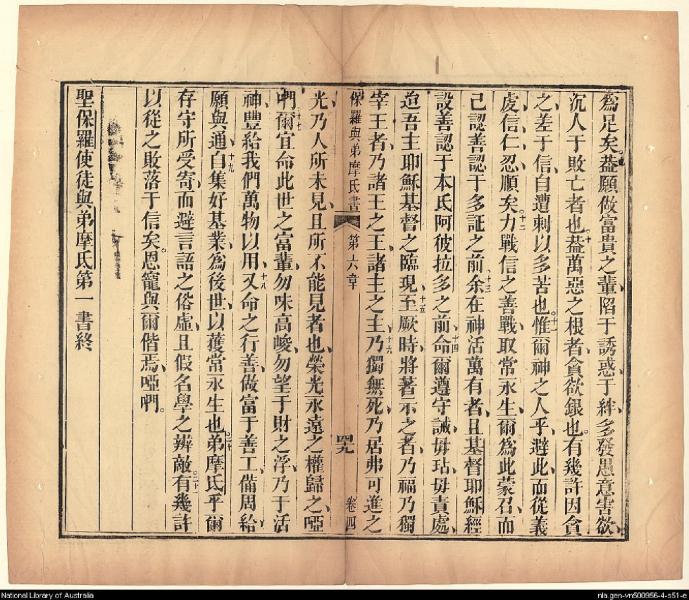 為足矣蓋願做富貴之輩陷于誘惑于絆多發愚意害欲
沉人于敗亡者也十蓋萬惡之根者貪欲銀也有幾許因貪
之差于信自遭刺以多苦也十一惟爾神之人乎避此而從義
虔信仁忍順矣十二力戰信之善戰取常永生爾為此蒙召而
己認善認于多証之前十三余在神活萬有者且基督耶穌經
設善認于本氏阿彼拉多之前十四命爾遵守誡毋玷毋責處
迨吾主耶穌基督之臨現十五至厥時將著示之者乃福乃獨
宰王者乃諸王之王諸主之主十六乃獨無死乃居弗可進之
保羅與弟摩氏書 第六章 卷四
光乃人所未見且所不能見者也榮光永遠之權歸之啞
吽十七爾宜命此世之富輩勿味高峻勿望于財之浮乃于活
神豐給我們萬物以用十八又命之行善做富于善工備周給
願與通十九自集好基業為後世以獲常永生也二十弟摩氏乎爾
存守所受寄而避言語之俗虛且假名學之辨敵二一有幾許
以從之敗落于信矣恩寵與爾偕焉啞吽
聖保羅使徒與弟摩氏第一書終
National Library of Australia
nla.gen-vn500956-4-s51-e